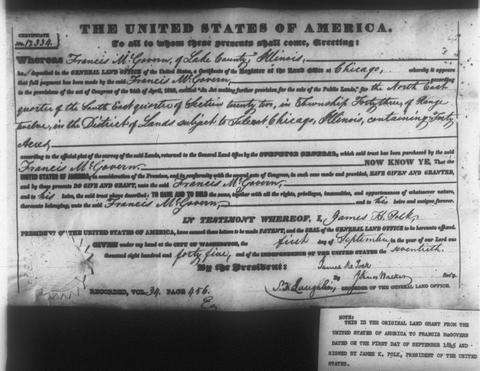 THE UNITED STATES OF AMERICA.
CERTIFICATE
No. 12.334.
To all to whom these presents shall come, Greeting:
Whereas Francis McGovern, of Lake County, Illinois,
has deposited in the GENERAL LAND OFFICE of the United States, a Certificate of the Register of the Land Office at Chicago, whereby it appears
that full payment has been made by the said Francis McGovern, according
to the provisions of the act of Congress of the 24th of April, 1820, entitled "An act making further provision for the sale of the Public Lands," for the North East
quarter of the South East quarter of Section twenty two, in Township Forty three, of Range
twelve, in the District of Lands subject to sale at Chicago, Illinois, containing Forty
Acres,
according to the official plat of the survey of the said Lands, returned to the General Land Office by the SURVEYOR GENERAL, which said tract has been purchased by the said
Francis McGovern NOW KNOW YE, That the
UNITED STATES OF AMERICA, in consideration of the Premises, and in conformity with the several acts of Congress, in such case made and provided, HAVE GIVEN AND GRANTED,
and by these presents DO GIVE AND GRANT, unto the said Francis McGovern,
and to his heirs, the said tract above described; TO HAVE AND TO HOLD the same, together with all the rights, privileges, immunities, and appurtenances of whatsoever nature,
thereunto belonging, unto the said Francis McGovern, and to his heirs and assigns forever.
IN TESTIMONY WHEREOF, I, James K. Polk,
PRESIDENT OF THE UNITED STATES OF AMERICA, have caused these letters to be made PATENT, and the SEAL of the GENERAL LAND OFFICE to be hereunto affixed.
GIVEN under my hand at the CITY OF WASHINGTON, the first day of September in the year of our Lord one
thousand eight hundred and forty five, and of the INDEPENDENCE OF THE UNITED STATES the seventieth.
By the President: James K. Polk
By Sec'y.
S. H. Laughlin RECORDER OF THE GENERAL LAND OFFICE.
RECORDED, VOL. 34. PAGE 456.
NOTE:
THIS IS THE ORIGINAL LAND GRANT FROM THE
UNITED STATES OF AMERICA TO FRANCIS McGOVERN
DATED ON THE FIRST DAY OF SEPTEMBER 1845 AND
SIGNED BY JAMES K. POLK, PRESIDENT OF THE UNITED
STATES.